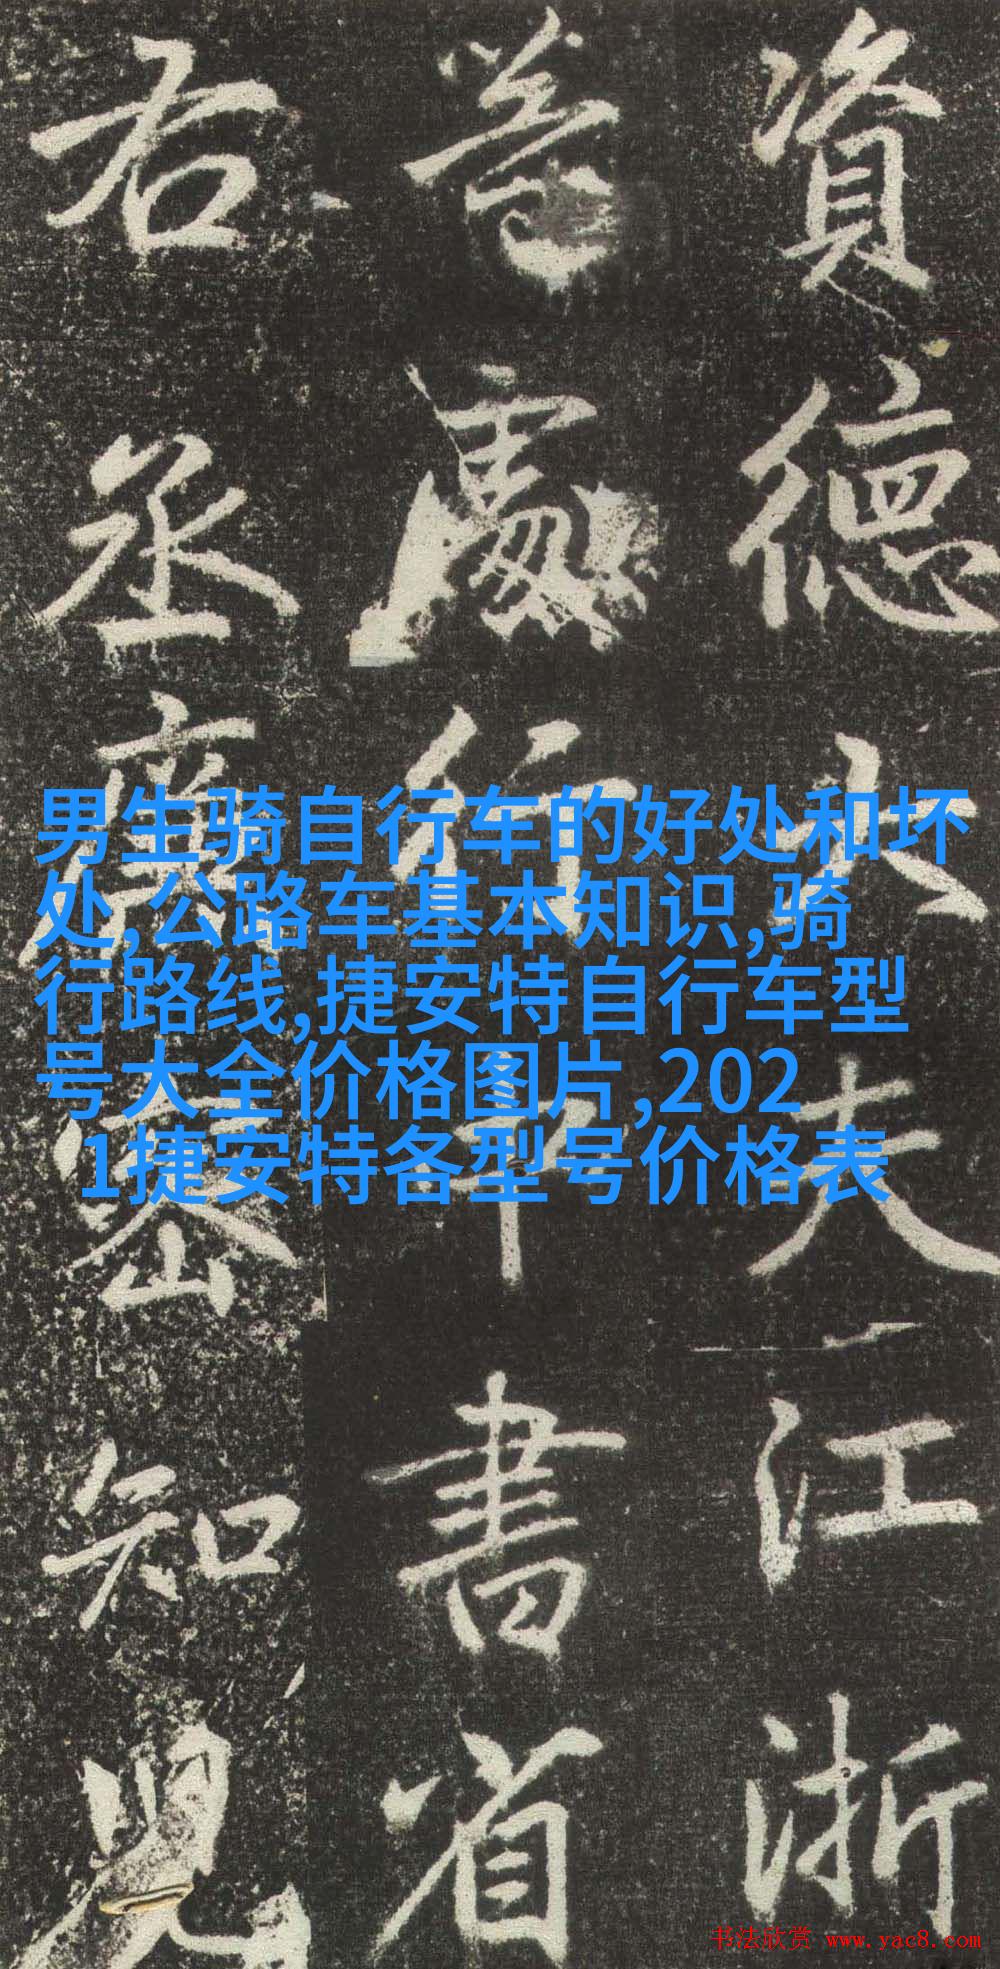 資德大夫江浙
等處行中書省
右丞廣密知見
男生骑自行车的好处和坏
处,公路车基本知识,骑
行路线,捷安特自行车型
号大全价格图片,202
1捷安特各型号价格表
书法欣赏 www.yac8.com